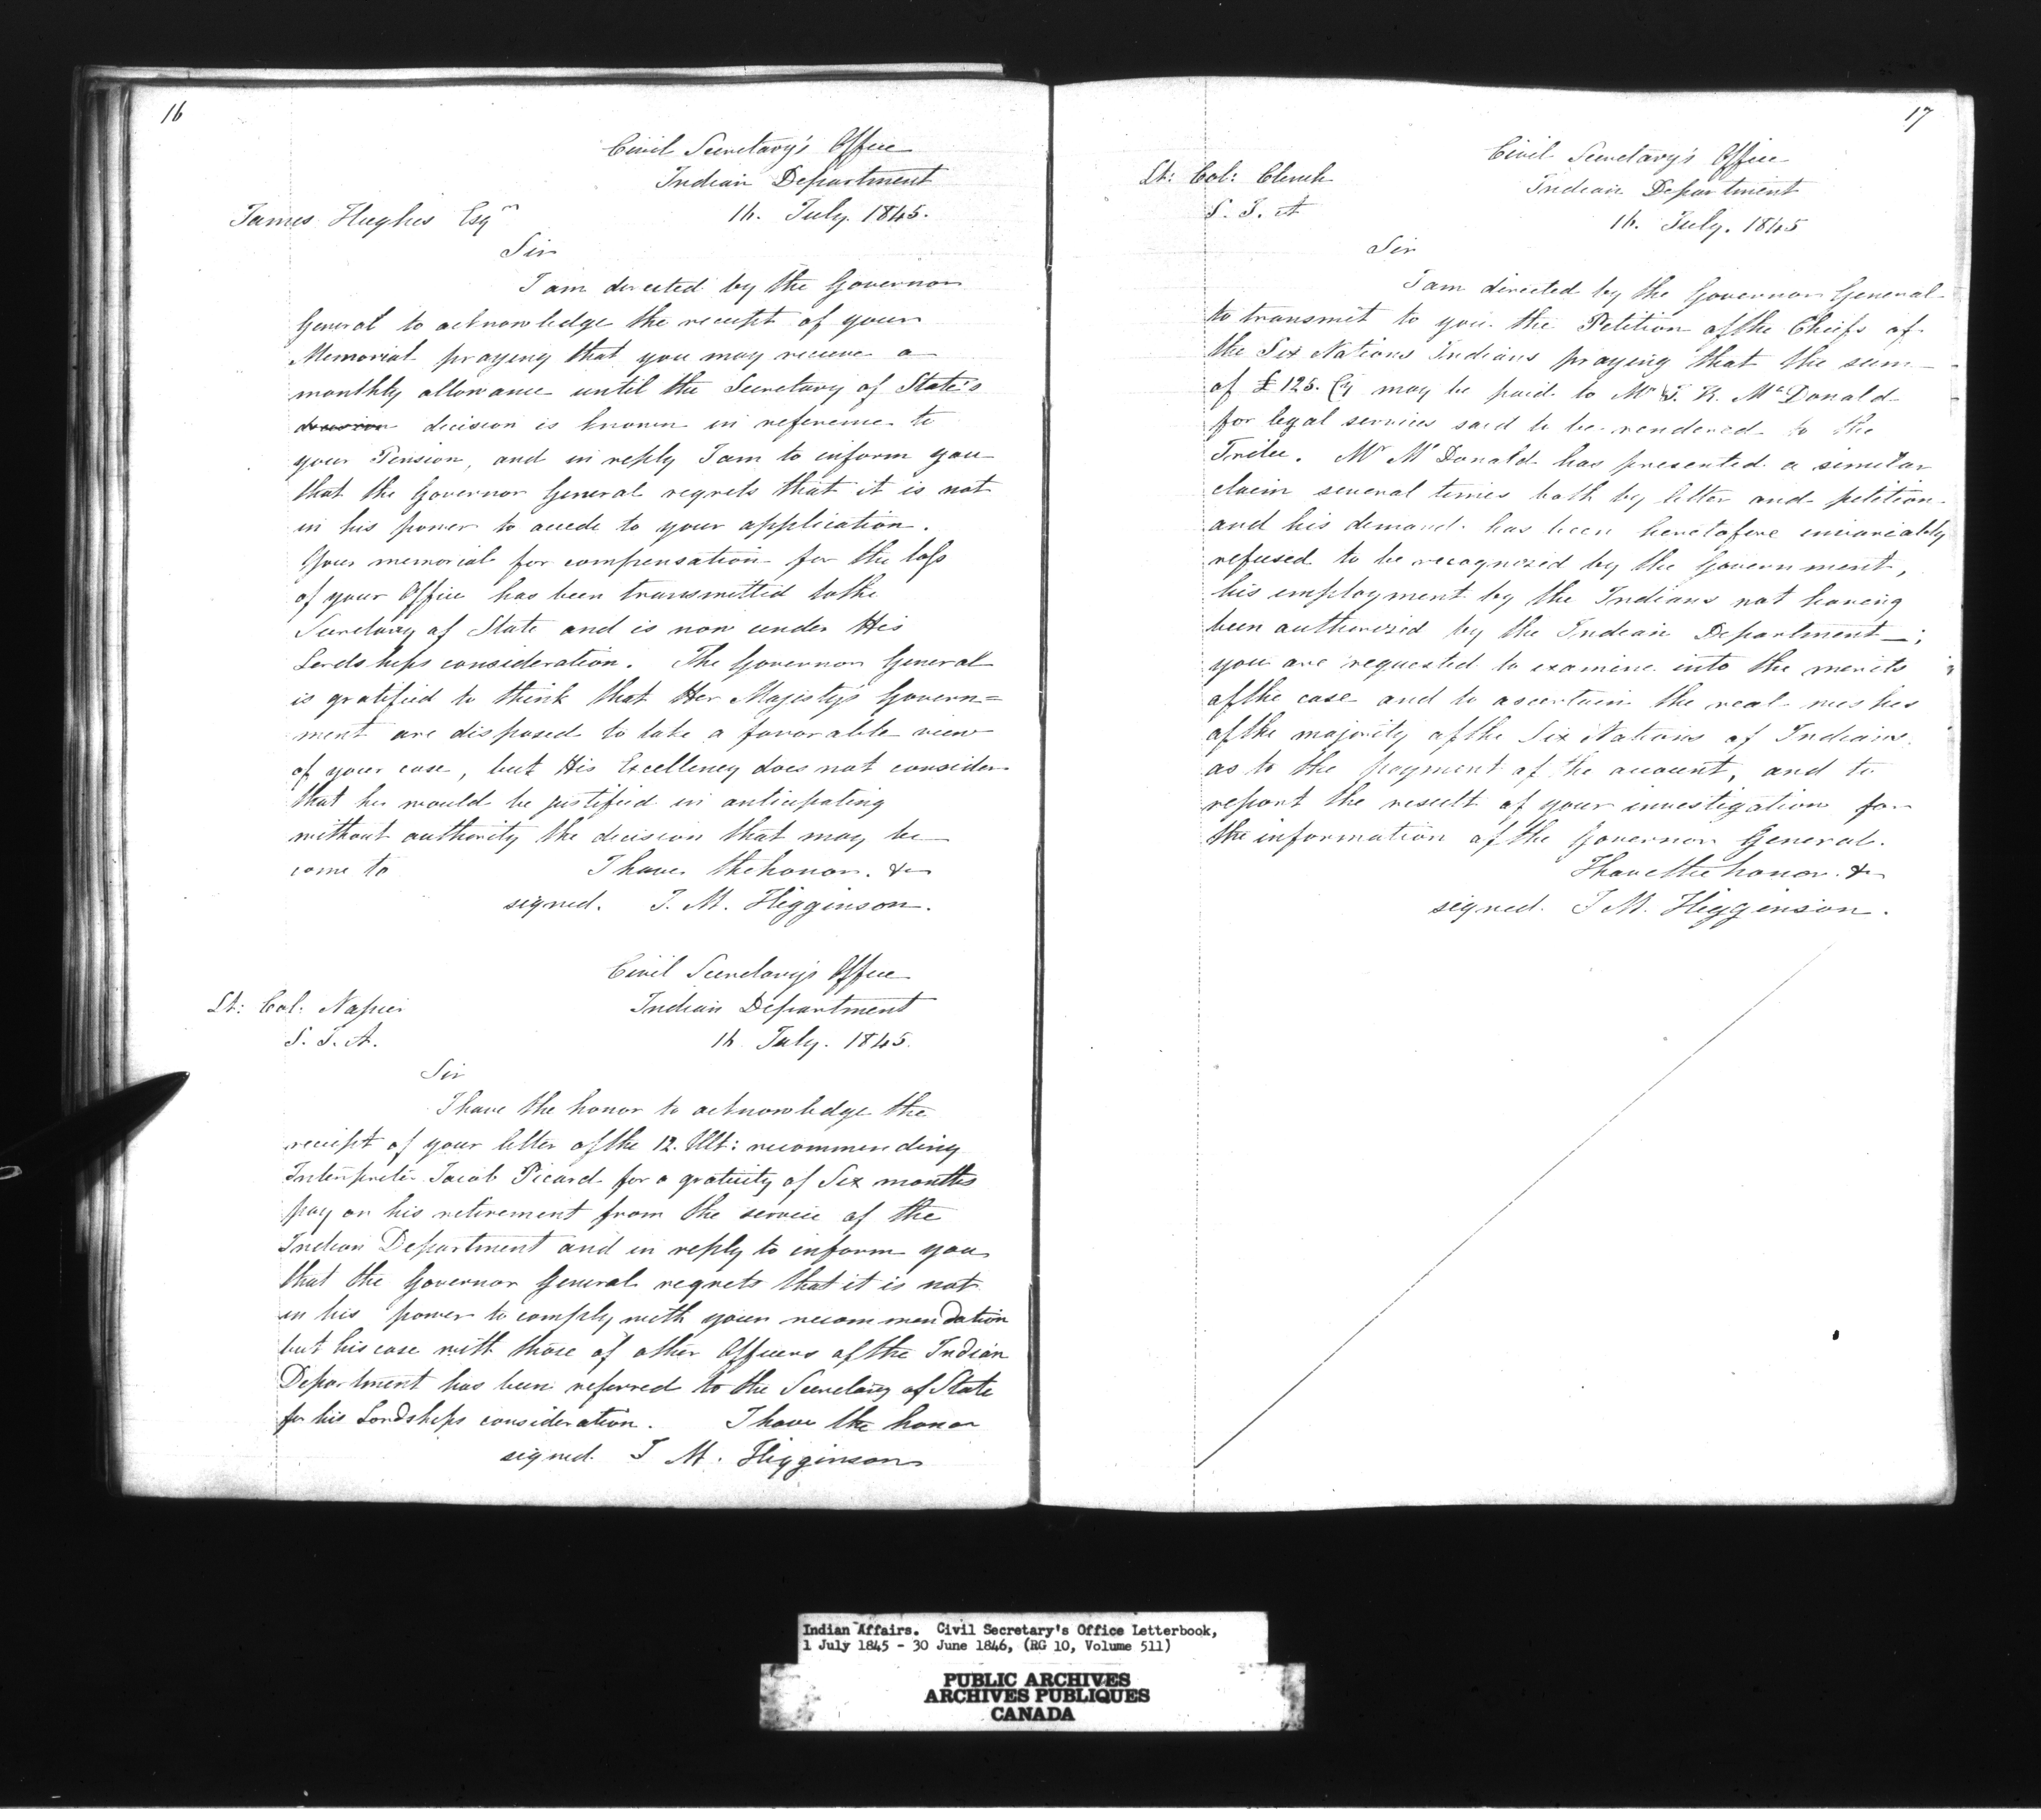 16
Civil Secretary's Office
Indian Department
James Hughes Esqr
16. July. 1845.
Sir
I am directed by the Governor
General to acknowledge the receipt of your
Memorial praying that you may receive a
monthly allowance until the Secretary of State's
decision decision is known in reference to
your Pension, and in reply I am to inform you
that the Governor General regrets that it is not
in his power to accede to your application.
Your memorial for compensation for the loss
of your Office has been transmitted to the
Secretary of State and is now under His
Lordships consideration. The Governor General
is gratified to think that Her Majesty's Govern=
ment are disposed to take a favorable view
of your case, but His Excellency does not consider
that he would be justified in anticipating
without authority the decision that may be
come to I have the honor. &c
signed. J. M. Higginson.
Civil Secretary's Office
Lt: Col: Napier Indian Department
S. I. A. 16 July. 1845.
Sir
I have the honor to acknowledge the
receipt of your letter of the 12. Ult: recommending
Interpreter Jacob Picard for a gratuity of Six months
pay on his retirement from the service of the
Indian Department and in reply to inform you
that the Governor General regrets that it is not
in his power to comply with your recommendation
but his case with those of other Officers of the Indian
Department has been referred to the Secretary of State
for his Lordships consideration. I have the honor
signed. J M. Higginson
17
Civil Secretary's Office
Lt: Col: Clench Indian Department
S. I. A 16. July. 1845
Sir
I am directed by the Governor General
to transmit to you the Petition of the Chiefs of
the Six Nations Indians praying that the sum
of £125. Cy may be paid to Mr J. K. McDonald
for legal services said to be rendered to the
Tribe. Mr McDonald has presented a similar
claim several times both by letter and petition
and his demand has been heretofore invariably
refused to be recognized by the Government,
his employment by the Indians not having
been authorized by the Indian Department;
you are requested to examine into the merits
of the case and to ascertain the real wishes
of the majority of the Six Nations of Indians
as to the payment of the account, and to
report the result of your investigation for
the information of the Governor General.
I have the honor. &c
signed. J M. Higginson.
Indian Affairs. Civil Secretary's Office Letterbook,
1 July 1845 - 30 June 1846, (RG 10, Volume 511)
PUBLIC ARCHIVES
ARCHIVES PUBLIQUES
CANADA